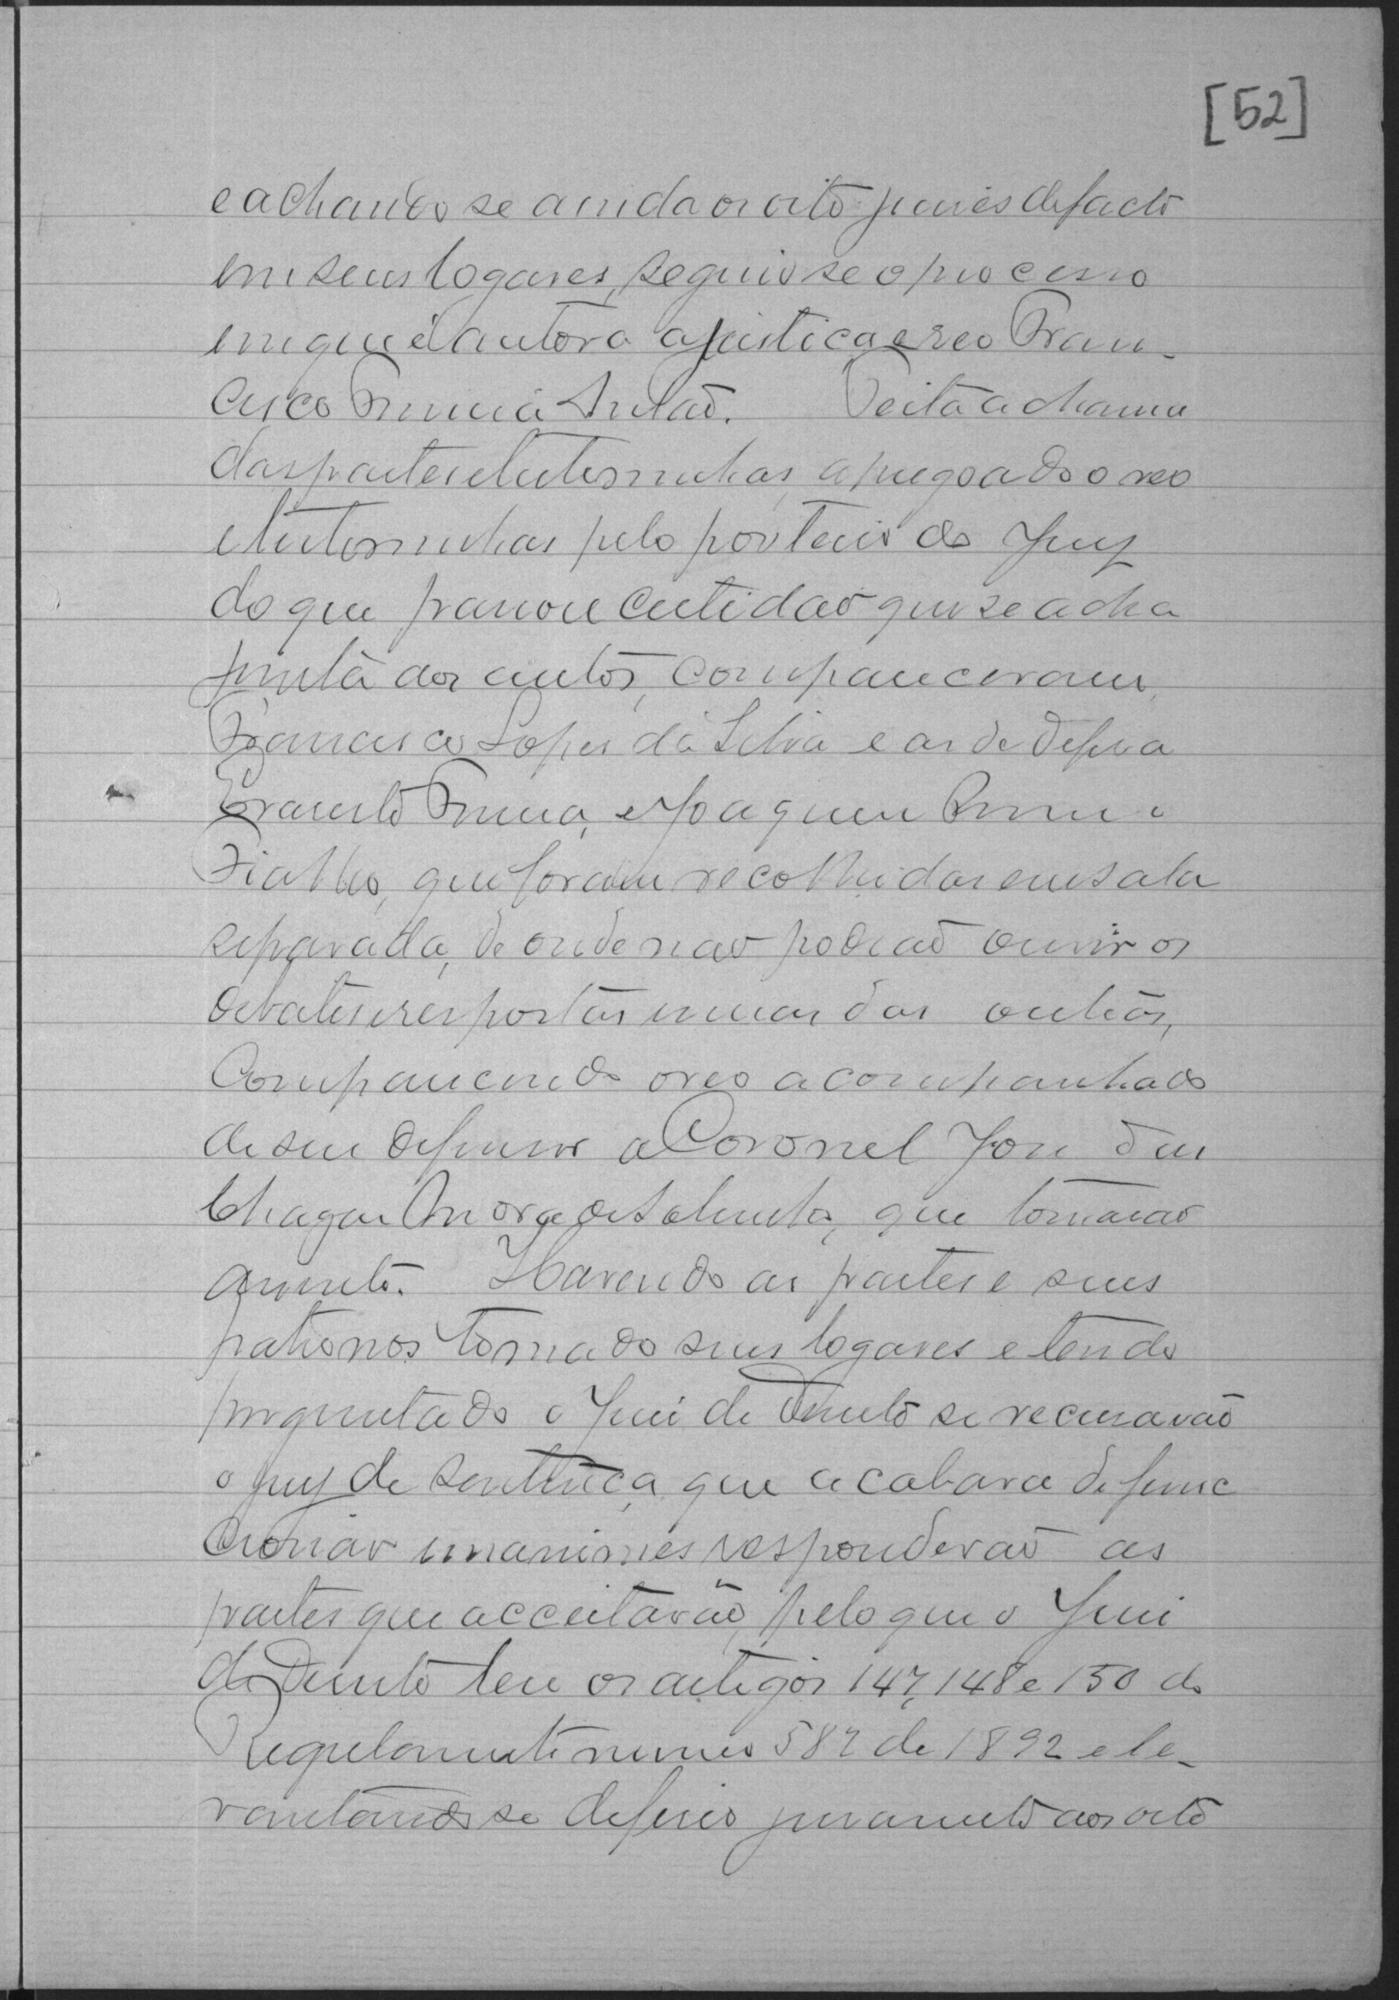 [52]
e achando se ainda os oito juises de facto
em seus logares, seguio se o processo
em que é autora a justiça e reo Fran-
cisco Simão. Feita a chama
das partes e testemunhas, apregoado o reo
e testemunhas pelo porteiro do Jury
do que passou certidão que se acha
junta aos autos, compareceram,
Francisco Lopes da Silva e as de defesa
e Joaquim
Fialho, que foram recolhidas em sala
separada, de onde não podião ouvir os
debates e respostas umas das outras,
Comparecendo o reo acompanhado
de seu defensor o Coronel José das
Chagas que tomarão
assento. Havendo as partes e seus
patronos tomado seus logares e tendo
perguntado o Juiz de Direito se recusavão
o jury de sentença que acabava de func
cionar unanimes responderão as
partes que acceitavão, pelo que o Juiz
de Direito leu os artigos 147, 148 e 150 do
Regulamento numero 587 de 1892 e le-
vantando se deferio juramento aos oito